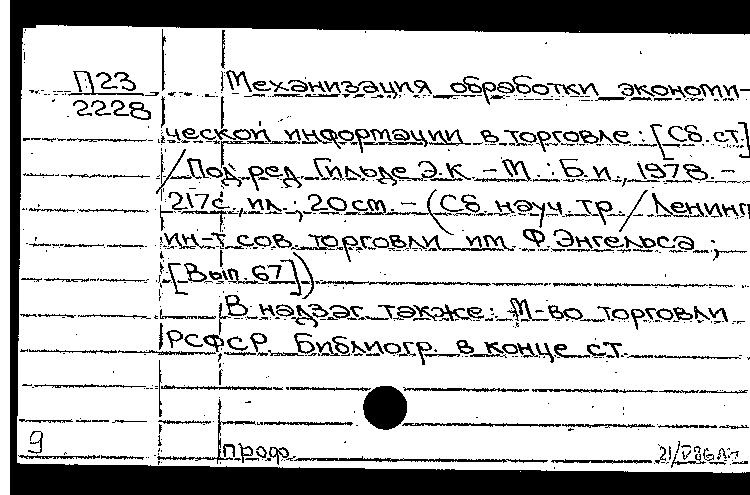 П23
2228
Механизация обработки экономи-
ческой информации в торговле: [Сб. ст.]
/ Под ред. Гильде Э.К. – М.: Б.и., 1978. –
217с., ил.; 20 см. – (Сб. науч. тр. / Ленингр.
ин-т сов. торговли им. Ф. Энгельса;
[Вып. 67])
В надзаг. также: М-во торговли
РСФСР. Библиогр. в конце ст.
9
проф.